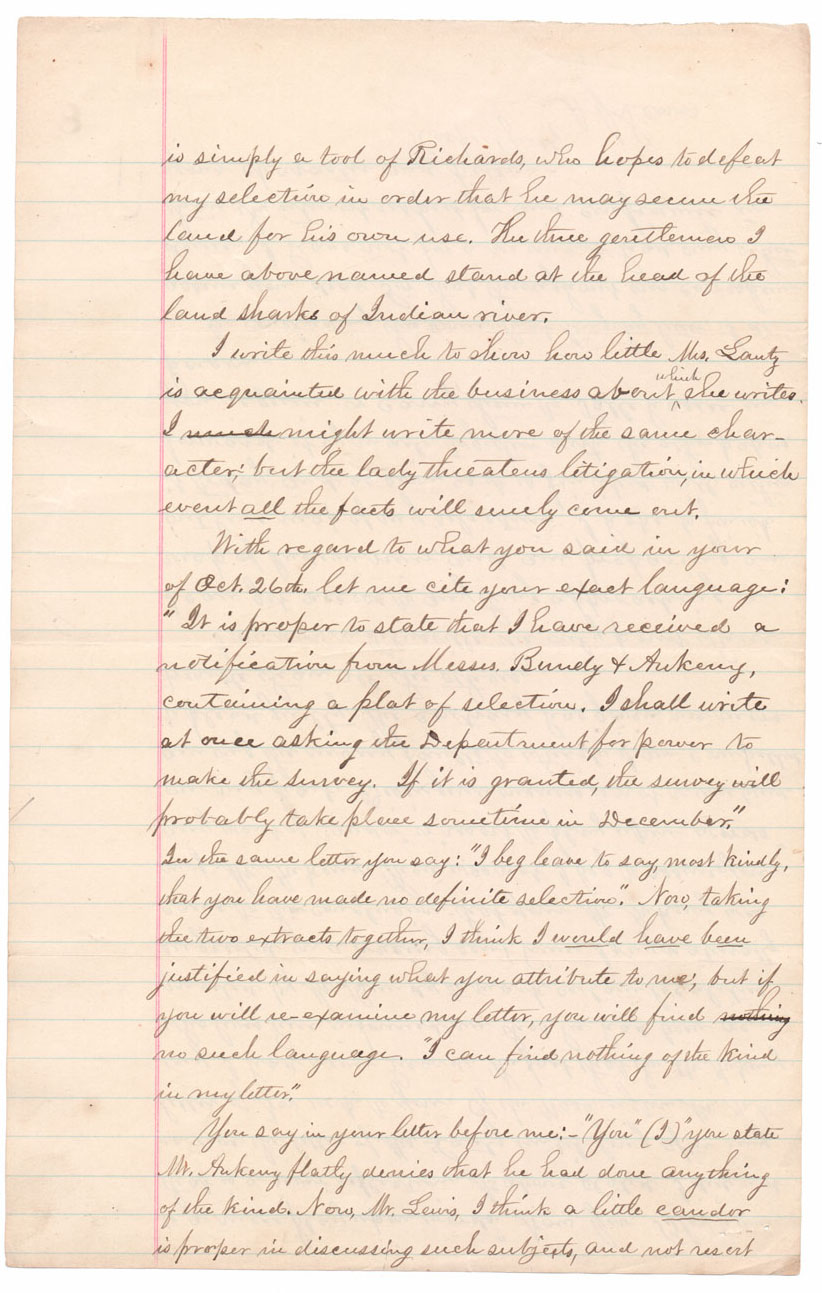 is simply a tool of Richards, who hopes to defeat
my selection in order that he may secure the
land for his own use. The three gentlemen I
have above named stand at the head of the
land sharks of Indian river.
I write this much to show how little Mrs. Lantz
is acquainted with the business about which she writes.
I much might write more of the same char-
acter; but the lady threatens litigation, in which
event all the facts will surely come out.
With regard to what you said in your
of Oct. 26th. let me cite your exact language:
"It is proper to state that I have received a
notification from Messrs. Bundy & Ankeny,
containing a plat of selection. I shall write
at once asking the Department for power to
make the survey. If it is granted, the survey will
probably take place sometime in December."
In the same letter you say: "I beg leave to say, most kindly,
that you have made no definite selection". Now, taking
the two extracts together, I think I would have been
justified in saying what you attribute to me; but if
you will re-examine my letter, you will find nothing
no such language. "I can find nothing of the kind
in my letter".
You say in your letter before me:- "You" (I) "you state
Mr. Ankeny flatly denies that he had done anything
of the kind. Now, Mr. Lewis, I think a little candor
is proper in discussing such subjects, and not resort